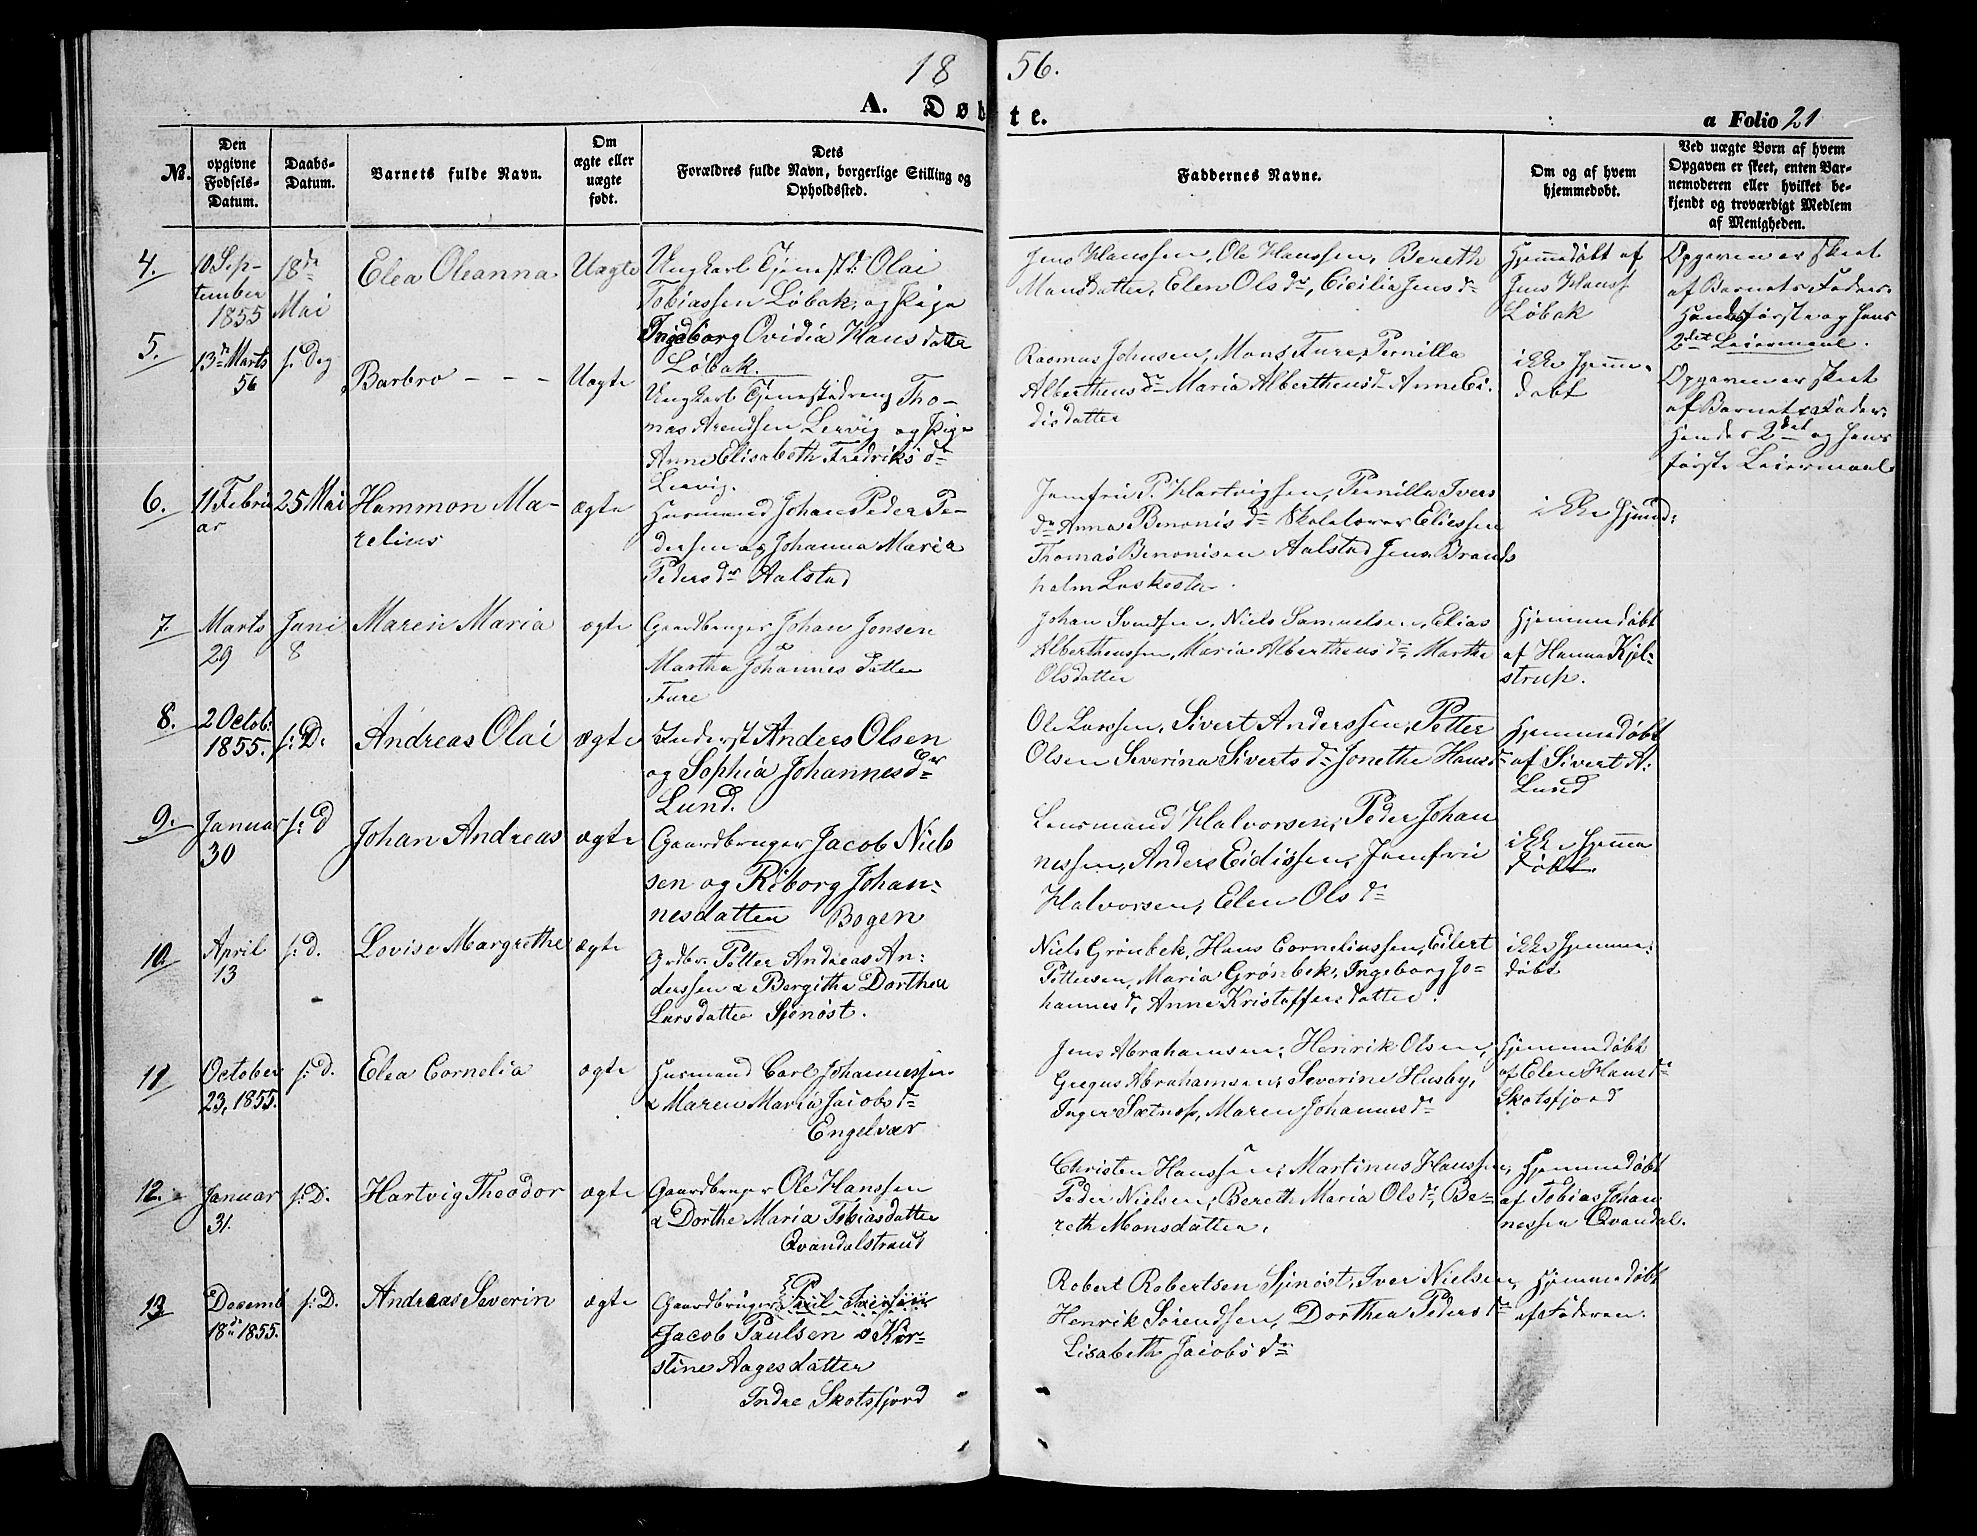 18 56.
A. Døbte.
a Folio 21
No.
Den opgivne Fødsels-Datum.
Daabs-Datum.
Barnets fulde Navn.
Om ægte eller uægte født.
Dets Forældres fulde Navn, borgerlige Stilling og Opholdssted.
Faddernes Navne.
Om og af hvem hjemmedøbt.
Ved uægte Børn af hvem Opgaven er skeet, enten Barnemoderen eller hvilket bekjendt og troværdigt Medlem af Menigheden.
4.
10 Sep-
tember
1855
18de
Mai
Elea Oleanna
Uægte
Ungkarl Tjenestd: Olai
Tobiassen Løbak, og Pige
Ingeborg Ovidia Hansdatter
Løbak.
Jens Hanssen, Ole Hanssen, Bereth
Monsdatter, Elen Olsdr, Cicilia Jensd
Hjemmedøbt af
Jens Hanss
Løbak
Opgaven er skeet
af Barnets Fader.
Hendes første og hans
2det Leiermaal.
5.
13de Marts
56
s. Dag
Barbro - - -
Uægte
Ungkarl Tjenestedreng Tho-
mas Arentsen Lervig og Pige
Anne Elisabeth Fredriksdr
Lervig.
Rasmus Johnsen, Mons Fure, Pernilla
Alberthensdr Maria Alberthensd Anne Ei-
disdatter
ikke hjemme-
døbt
Opgaven er skeet
af Barnets Fader.
Hendes 2det og hans
første Leiermaal
6.
11 Febru
ar
25 Mai
Hammon Ma-
relius
ægte
Husmand Johan Peder Pe-
dersen og Johanna Maria
Pedersdr Aalstad
Jomfru P. Hartvigsen, Pernilla Ivers
dr Anna Benonisdr Skolelærer Eliessen
Thomas Benonisen Aalstad Jens Brands
holm Laskestad.
ikke hjemd:
7.
Marts
29
Juni
8
Maren Maria
ægte
Gaardbruger Johan Jonsen
Martha Johannesdatter
Fure
Johan Svendsen, Niels Samuelsen, Elias
Alberthenssen, Maria Alberthensdr, Marthe
Olsdatter
Hjemmedøbt
af Hanna Kjel-
strup.
8.
2 Octob:
1855.
s: D.
Andreas Olai
ægte
Inderst Anders Olsen
og Sophia Johannesdr
Lund.
Ole Larssen, Sivert Anderssen, Petter
Olsen Severina Sivertsdr Jonetha Hansdr
Hjemmedøbt
af Sivert A:
Lund
9.
Januar
30
s: D
Johan Andreas
ægte
Gaardbruger Jacob Niel
sen og Riborg Johan-
nesdatter Bogen
Lensmand Halvorsen, Peder Johan
nessen, Anders Eidissen, Jomfru
Halvorsen, Elen Olsdr
ikke hjemme
døbt.
10.
April
13
s: D.
Lovise Margrethe
ægte
Grdbr. Petter Andreas An-
derssen & Bergitha Dorthea
Larsdatter Sjønøst.
Niels Grønbek, Hans Corneliussen, Eilert
Pettersen, Maria Grønbek, Ingeborg Jo-
hannesd, Anne Kristoffersdatter.
ikke hjemme-
døbt
11
October
23, 1855.
s: D.
Elea Cornelia
ægte
Husmand Carl Johannessen
& Maren Maria Jacobsdr
Engelvær
Jens Abrahamsen, Henrik Olsen,
Gregus Abrahamsen, Severine Husby,
Inger Sætnes, Maren Johannesdr
Hjemmedøbt
af Elen Hansdr
Skotsfjord
12.
Januar
31.
s: D.
Hartvig Theodor
ægte
Gaardbruger Ole Hanssen
& Dorthe Maria Tobiasdatter
Qvandalstrand
Christen Hanssen, Martinus Hanssen,
Peder Nielsen, Bereth Maria Olsdr, Be-
reth Monsdatter.
Hjemmedøbt
af Tobias Johan
nessen Qvandal.
13
Desemb
18de 1855.
s: D.
Andreas Severin
ægte
Gaardbruger
Jacob Paulsen & Kir-
stine Aagesdatter
Indre Skotsfjord
Robert Robertsen Sjønøst, Iver Nielsen,
Henrik Sørendsen, Dorthea Pedersdr
Lisabeth Jacobsdr
Hjemmedøbt
af Faderen.